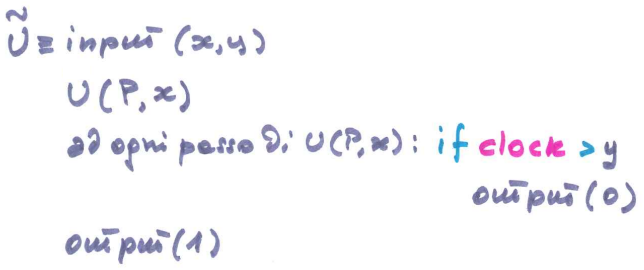 Ũ ≡ input (x,y)
U(P,x)
ad ogni passo di U(P,x): if clock > y
output(0)
output(1)